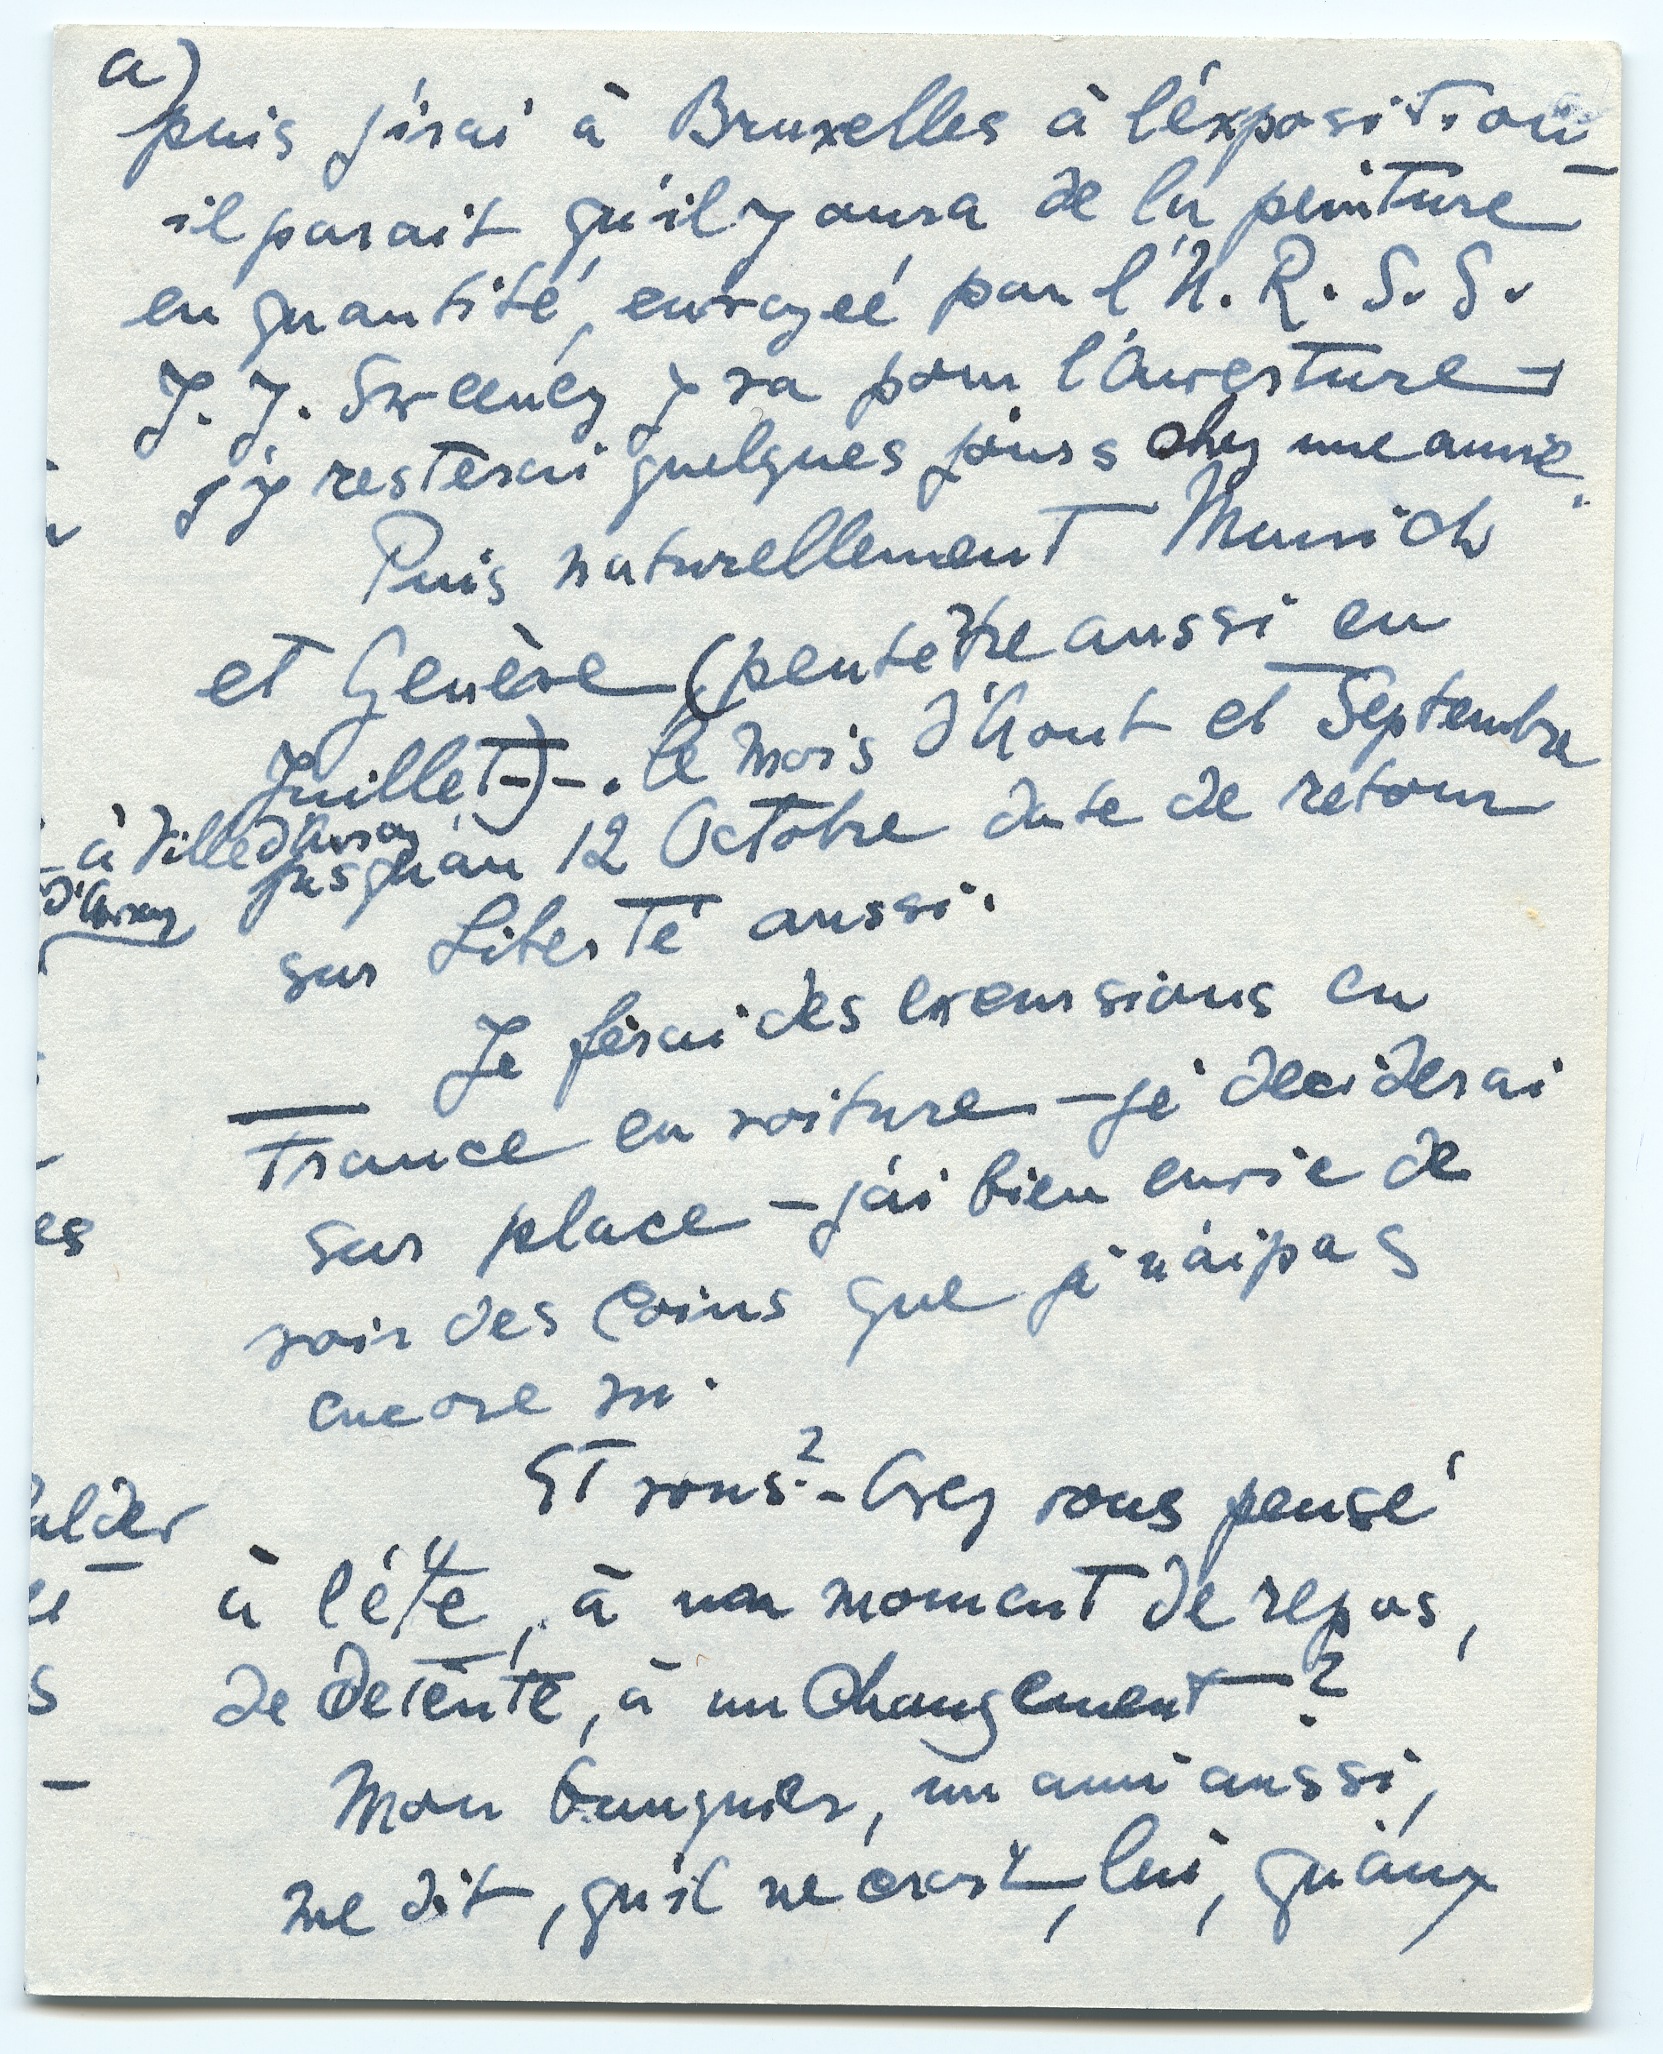 a)
puis j'irai à Bruxelles à l'éxposition –
il parait qu'il y aura de la peinture
en quantité, envoyeé par l'U.R.S.S.
J. J. Sweeney y va pour l'Ouverture –
j'y resterai quelques jours chez une amie.
Puis naturellement Munich
et Genève (peutetre aussi en
Juillet-)-. le mois d'Aout et Septembre
à Ville d'Avray jusqu'au 12 Octobre date de retour
d'Avray
sur Liberté aussi.
Je férai des excursions en
France en voiture – je deciderai
sur place – j'ai bien envie de
es
voir des Coins que je n'ai pas
encore vu.
Et vous? – Avez vous pensé
alder
à l'été, à un moment de repos,
s
de detente, à un Changement – ?
–
Mon banquier, un ami aussi,
me dit, qu'il ne croit, lui, qu'aux